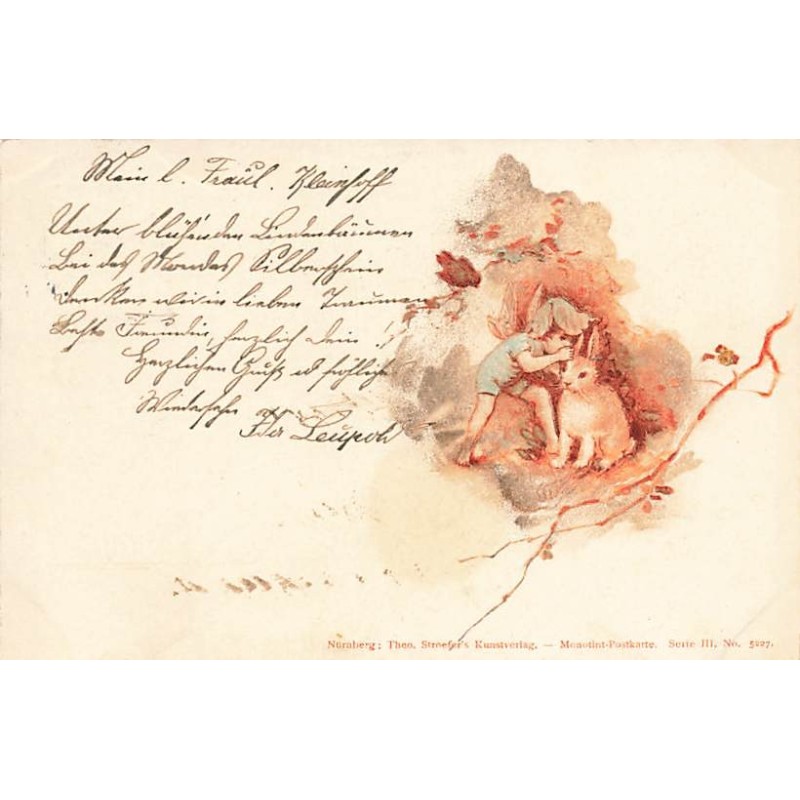 Mein l. Fräul. Kleinhoff
Unter blühenden Lindenbäumen
Bei des Mondes Silberschein
Denken wir in lieben Träumen
Beste Freundin, herzlich Dein!
Herzlichen Gruß fröhliche
Wiedersehn
Leupold
Nürnberg: Theo. Stroefer's Kunstverlag. — Monotint-Postkarte. Serie III, No. 5227.